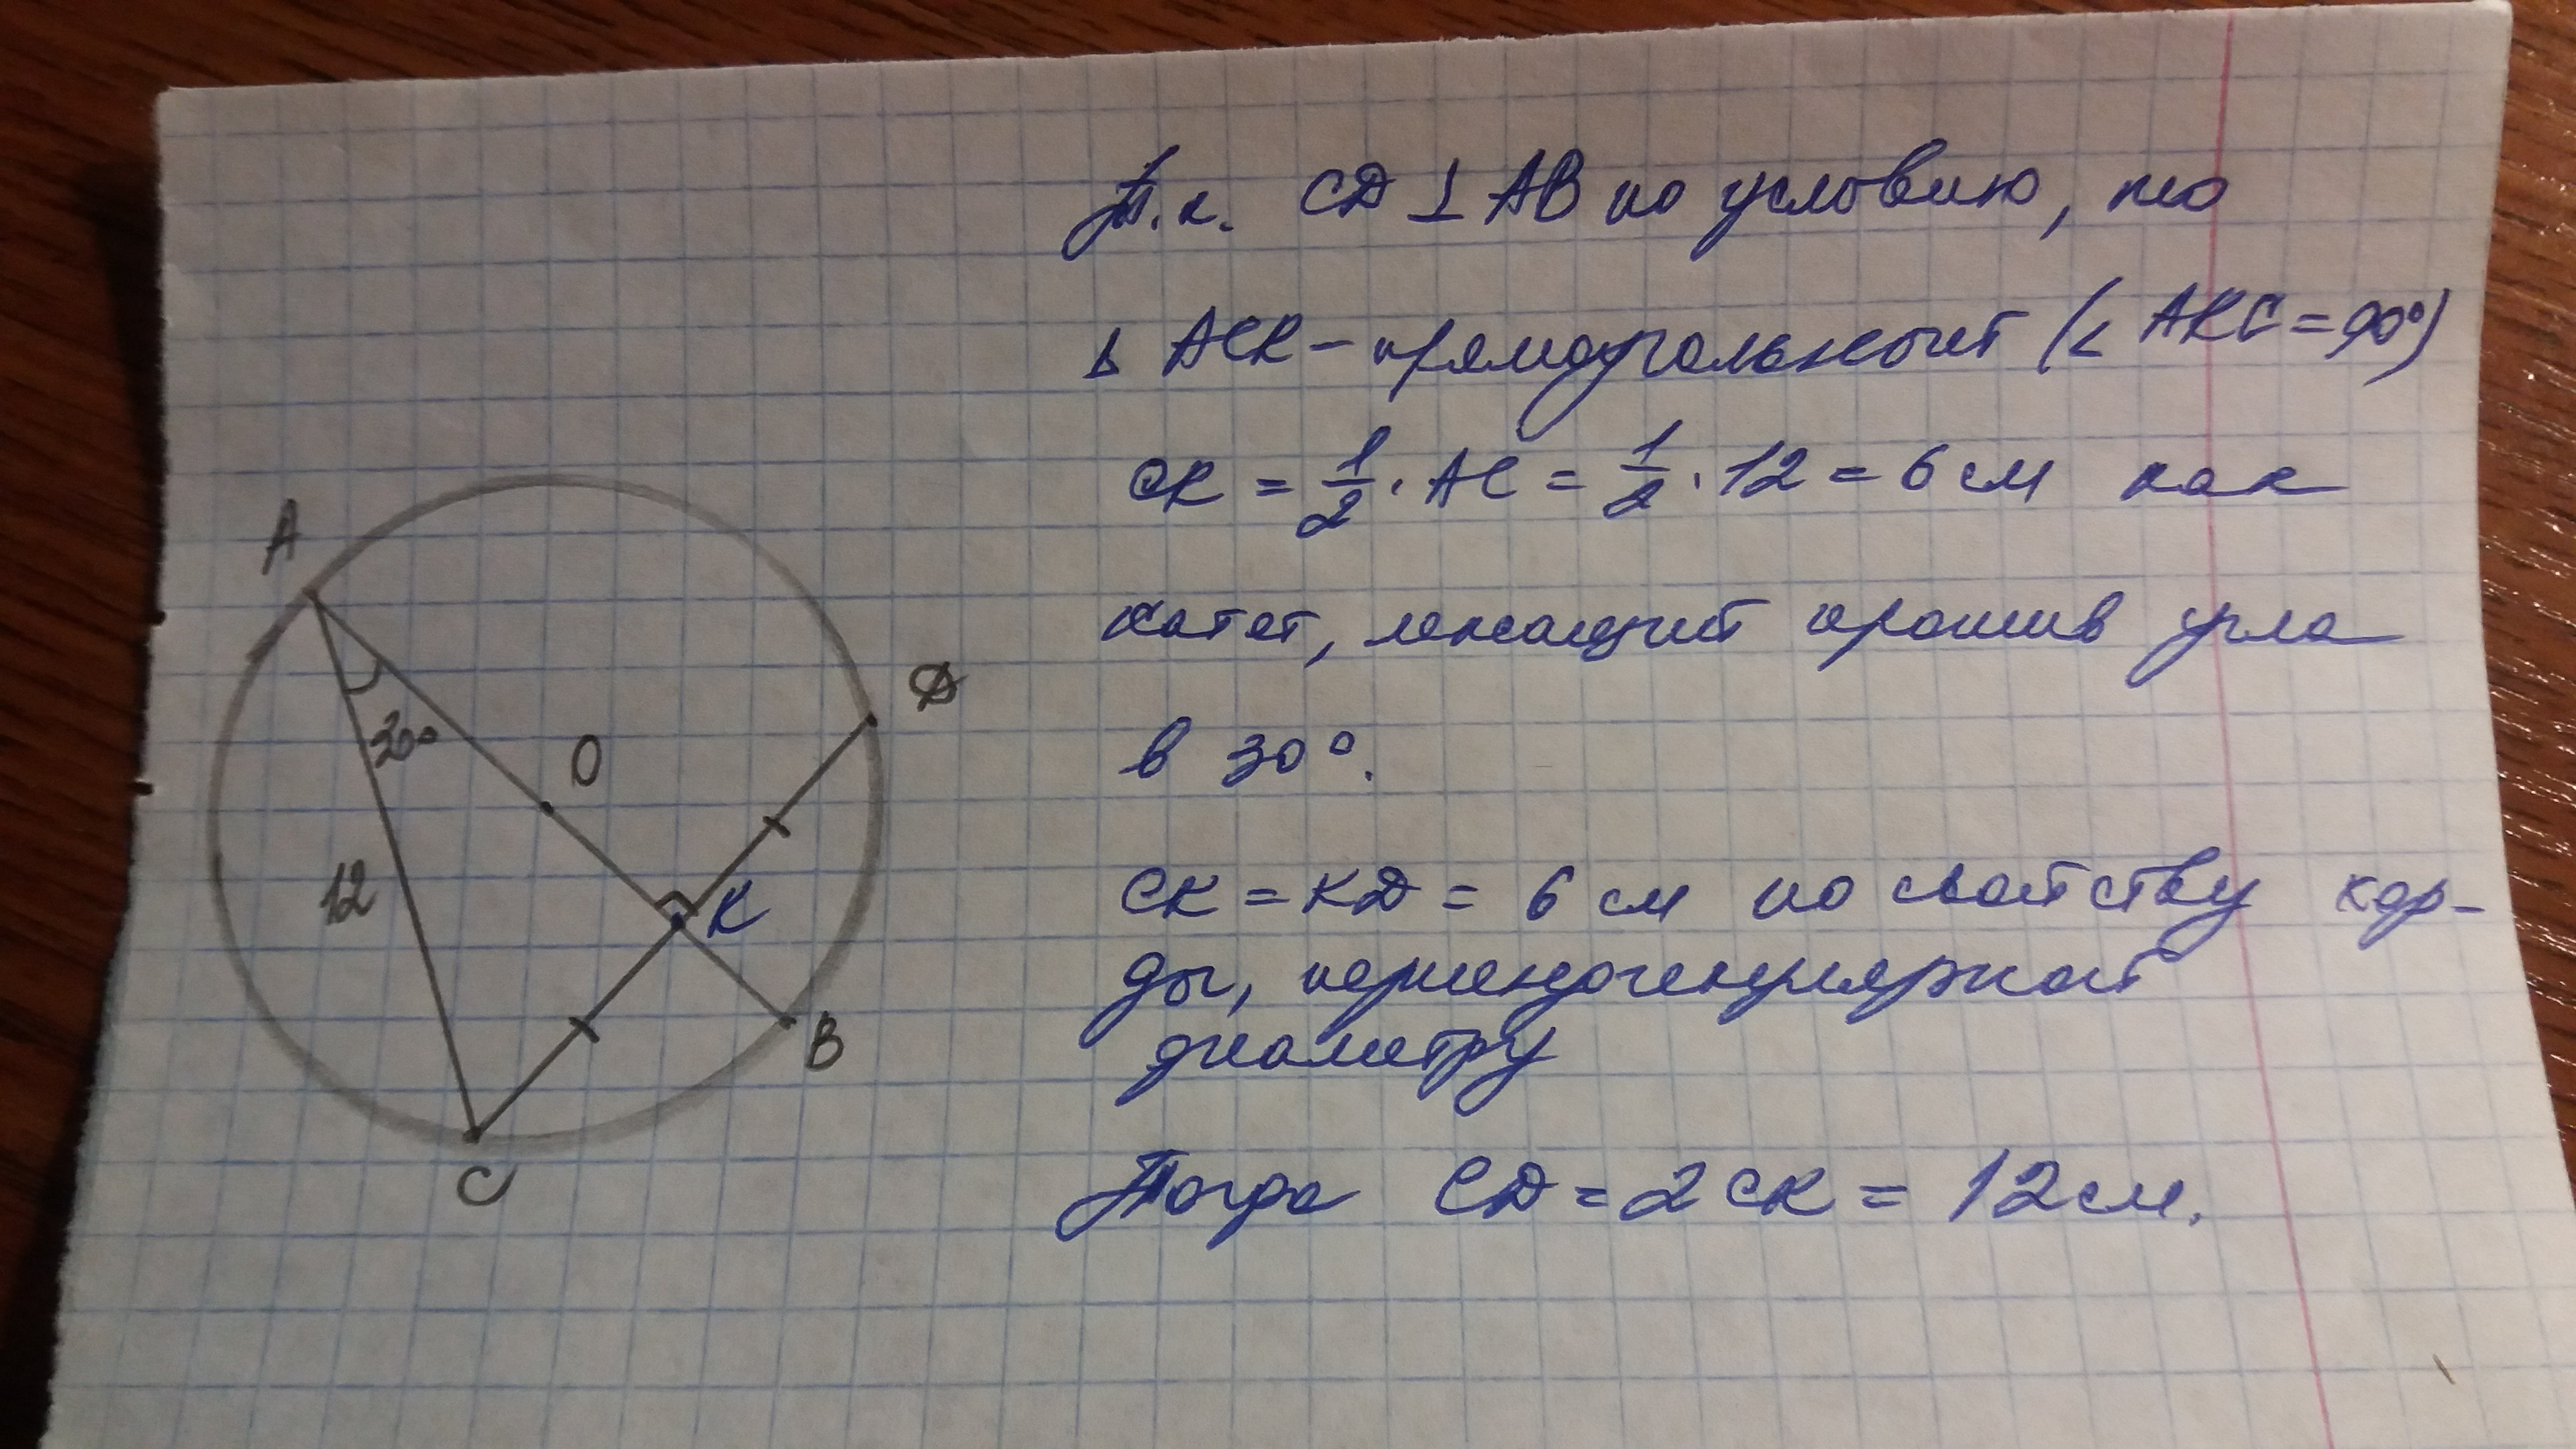 Т.к. CD ⊥ AB по условию, то
Δ ACK - прямоугольный (∠ AKC = 90°)
CK = 1/2 · AC = 1/2 · 12 = 6 см как
катет, лежащий против угла
в 30°.
CK = KD = 6 см по свойству хор-
ды, перпендикулярной
диаметру
Тогда CD = 2 CK = 12 см.
A
30°
O
D
12
K
B
C